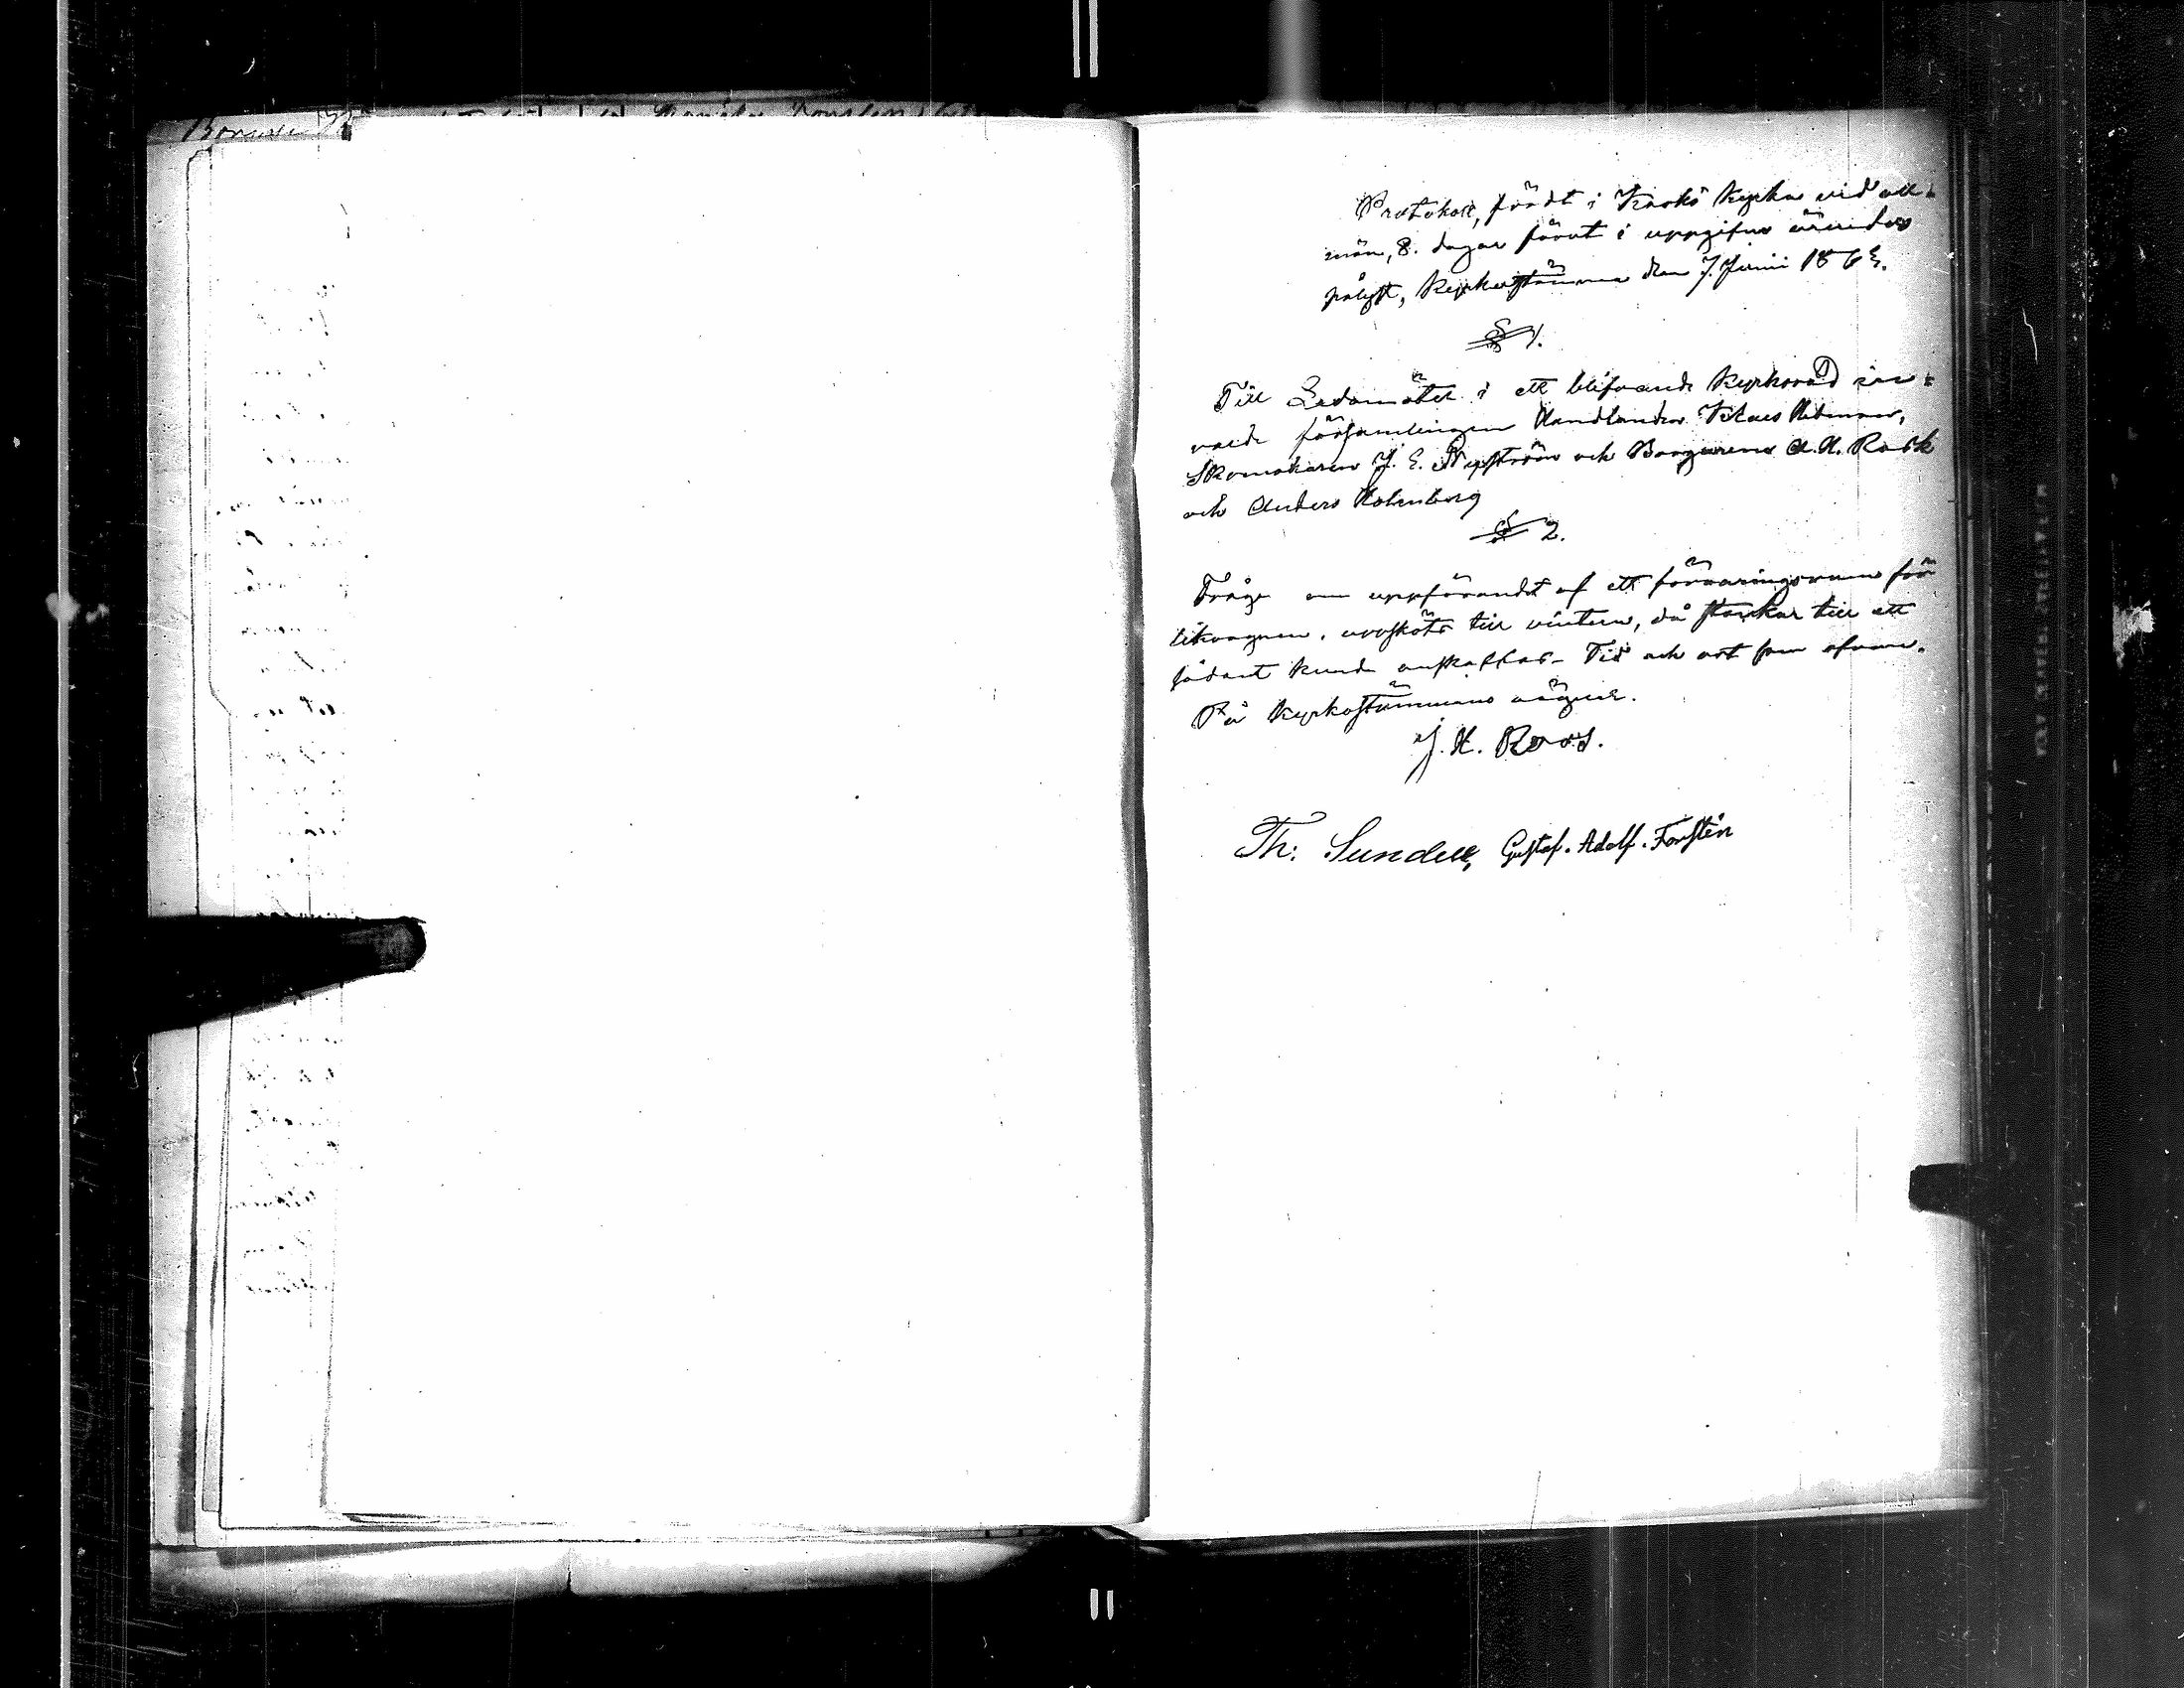 Protokoll, fördt i Kaskö Kyrka vid all-
män, 8. dagar förut i uppgifne ärender
pålyst, Kyrkostämma den 7. Junii 1863.
§ 1.
Till Ledamöter i ett blifvande Kyrkoråd in-
valde församlingen Handlanden Klaes Hedman,
Skomakaren J. E. Nyström och Borgarena A. H. Rosk
och Anders Holmberg
§ 2.
Fråga om uppförandet af ett förvaringsrum för
likvagnen, uppsköts till vintern, då stockar till ett
sådant kunde anskaffas. Tid och ort som ofvan.
På Kyrkostämmans vägnar.
J. H. Roos.
Th: Sundell, Gustaf. Adolf. Forstén